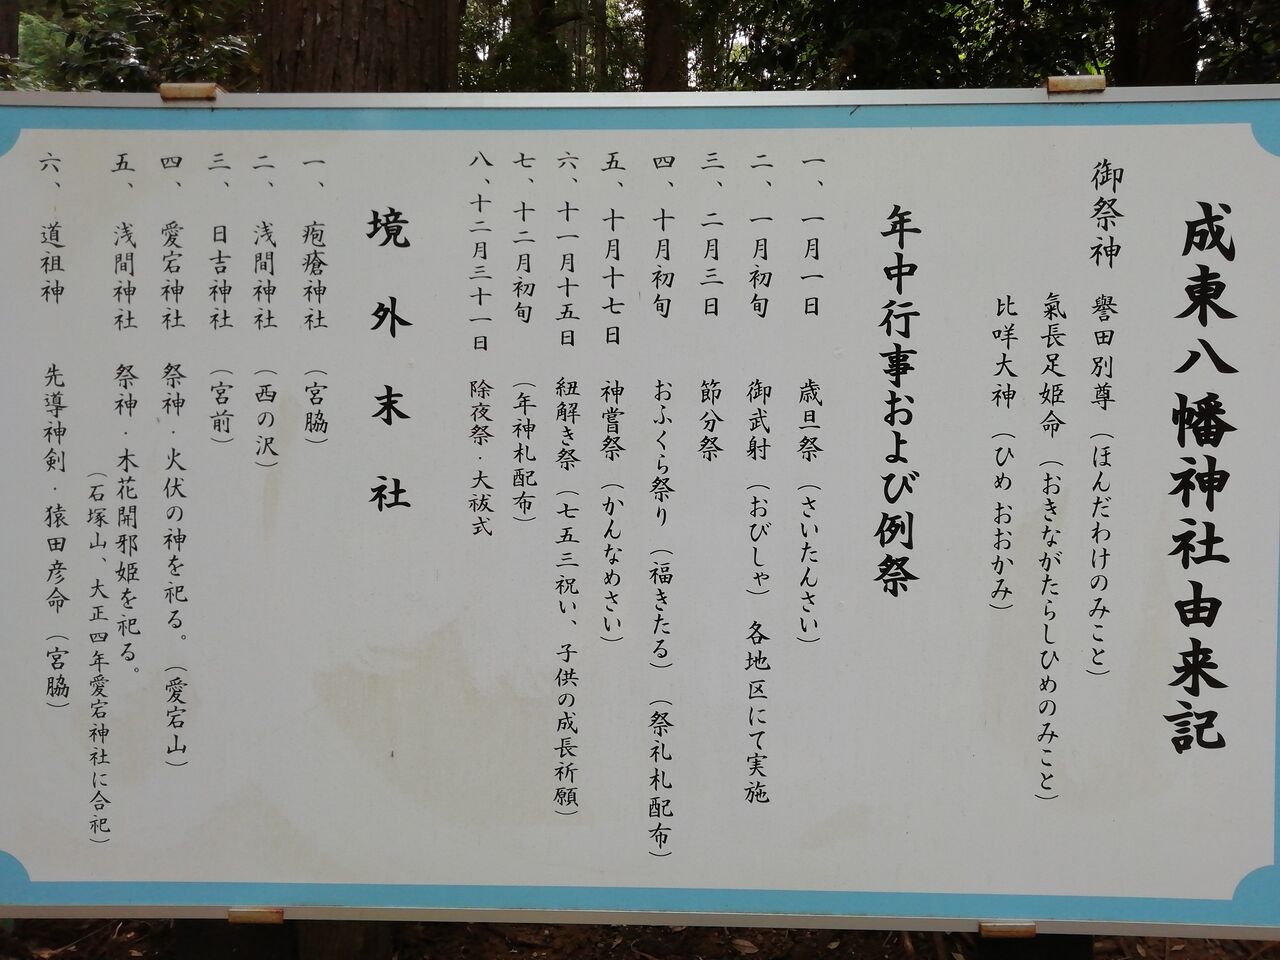 成東八幡神社由来記
御祭神　譽田別尊（ほんだわけのみこと）
氣長足姫命（おきながたらしひめのみこと）
比咩大神（ひめおおかみ）
年中行事および例祭
一、一月一日　歳旦祭（さいたんさい）
二、一月初旬　御武射（おびしゃ）各地区にて実施
三、二月三日　節分祭
四、十月初旬　おふくら祭り（福きたる）（祭礼札配布）
五、十月十七日　神嘗祭（かんなめさい）
六、十一月十五日　紐解き祭（七五三祝い、子供の成長祈願）
七、十二月初旬（年神札配布）
八、十二月三十一日　除夜祭・大祓式
境外末社
一、疱瘡神社（宮脇）
二、浅間神社（西の沢）
三、日吉神社（宮前）
四、愛宕神社　祭神・火伏の神を祀る。（愛宕山）
五、浅間神社　祭神・木花開邪姫を祀る。
（石塚山、大正四年愛宕神社に合祀）
六、道祖神　先導神剣・猿田彦命（宮脇）